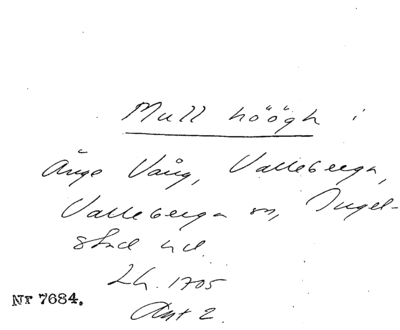 Mull höögh i
Änge Vång, Valleberga,
Valleberga sn, Ingel-
stad hd.
Lh. 1705
Ant 2
Nr 7684.